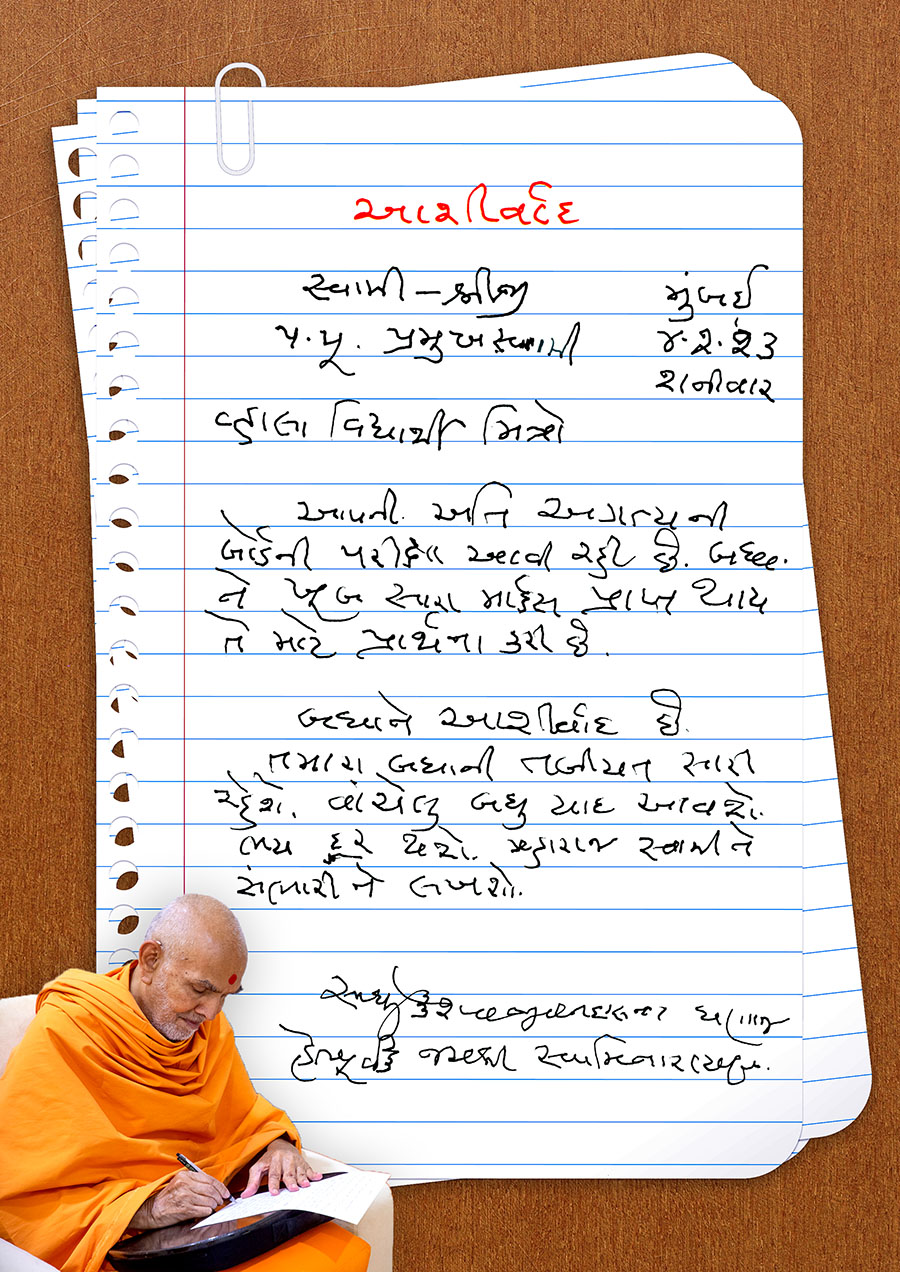 આશીર્વાદ
સ્વામી – શ્રીજી
મુંબઈ
પ.પૂ. પ્રમુખસ્વામી
૪.૨.૨૩
શનીવાર
વ્હાલા વિદ્યાર્થી મિત્રો
આપની અતિ અગત્યની
બોર્ડની પરીક્ષા આવી રહી છે. બધા.
ને ખૂબ સારા માર્ક્સ પ્રાપ્ત થાય
તે માટે પ્રાર્થના કરી છે.
બધાને આશીર્વાદ છે.
તમારા બધાની તબીયત સારી
રહેશે. વાંચેલુ બધુ યાદ આવશે.
ભય દૂર થશે. મહારાજ સ્વામીને
સંભારીને લખશો.
સાધુ કેશવજીવનદાસના ઘણાજ
હેતપૂર્વક જયશ્રી સ્વામિનારાયણ.